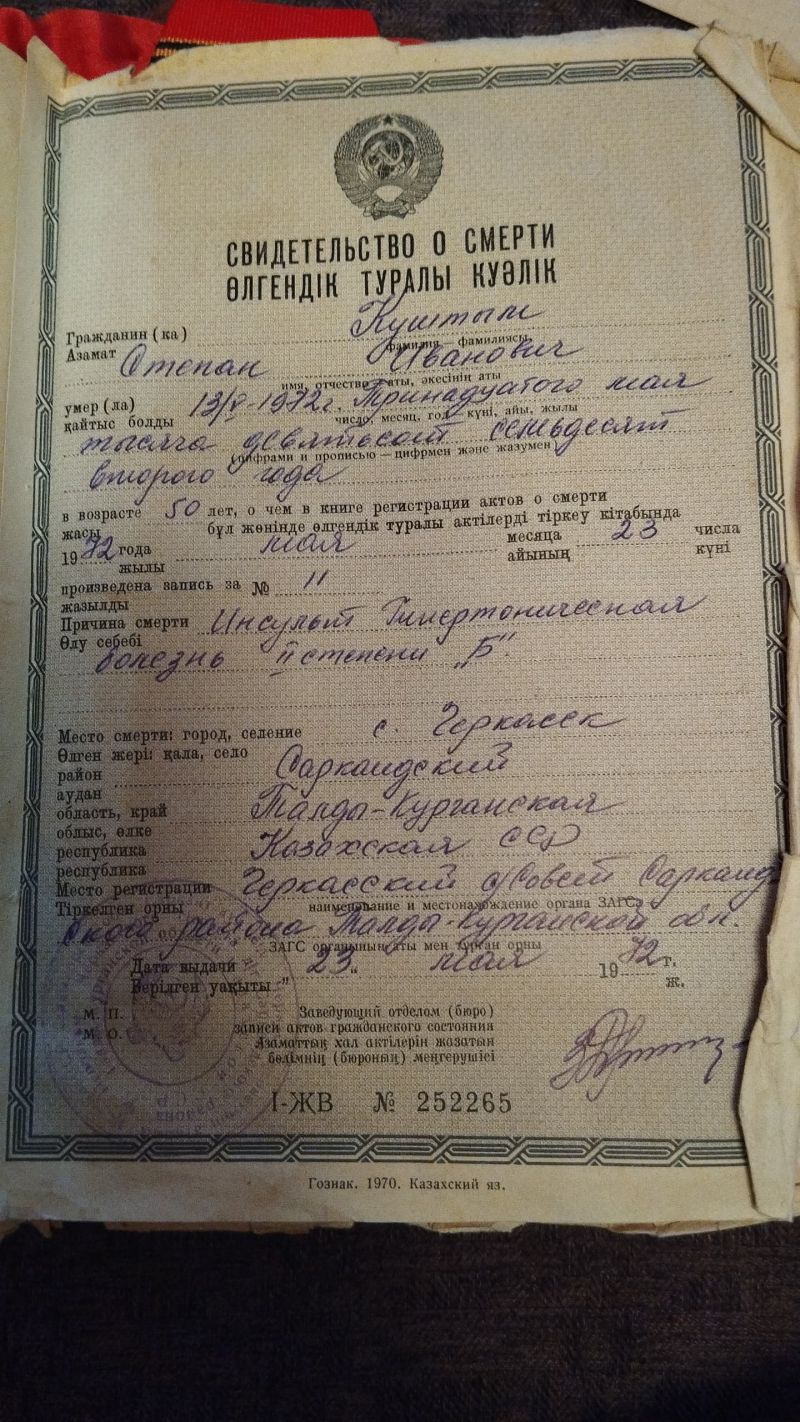 СВИДЕТЕЛЬСТВО О СМЕРТИ
ӨЛГЕНДІК ТУРАЛЫ КУӘЛІК
Гражданин (ка) Куштым
Азамат
фамилия — фамилиясы
Степан Иванович
имя, отчество — аты, әкесінің аты
умер (ла) 13/V-1972г, Тринадцатого мая
қайтыс болды
число, месяц, год — күні, айы, жылы
тысяча девятьсот семьдесят
(цифрами и прописью — цифрмен және жазумен)
второго года
в возрасте 50 лет, о чем в книге регистрации актов о смерти
жасы бұл жөнінде өлгендік туралы актілерді тіркеу кітабында
1972 года мая месяца 23 числа
жылы айының күні
произведена запись за № 11
жазылды
Причина смерти Инсульт Гипертоническая
Өлу себебі
болезнь II степени „Б".
Место смерти: город, селение с. Черкасск
Өлген жері: қала, село
район Саркандский
аудан
область, край Талды-Курганская
облыс, өлке
республика Казахская ССР
республика
Место регистрации Черкасский с/Совет Сарканд
Тіркелген орны
наименование и местонахождение органа ЗАГСа
ского района Талды-Курганской обл.
ЗАГС органының аты мен тұрған орны
Дата выдачи „23„ мая 1972 г.
Берілген уақыты ж.
М. П.
М. О.
Заведующий отделом (бюро)
записи актов гражданского состояния
Азаматтық хал актілерін жазатын
бөлімнің (бюроның) меңгерушісі
I-ЖВ № 252265
Гознак. 1970. Казахский яз.